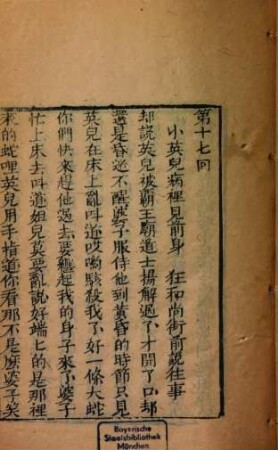 第十七回
小英兒病裡見前身　狂和尚街前説往事
却說英兒被霸王廟道士揚解過了才開了口却
還是昏迷不醒婆子服侍他到黃昏的時節只見
英兒在床上亂叫道哎喲駭殺我了好一條大蛇
你們快來趕他過去要纏起我的身子來了婆子
忙上床去叫道姐兒莫要亂說好端七的是那裡
來的蛇哩英兒用手指道你看那不是麽婆子矣
Bayerische
Staatsbibliothek
München